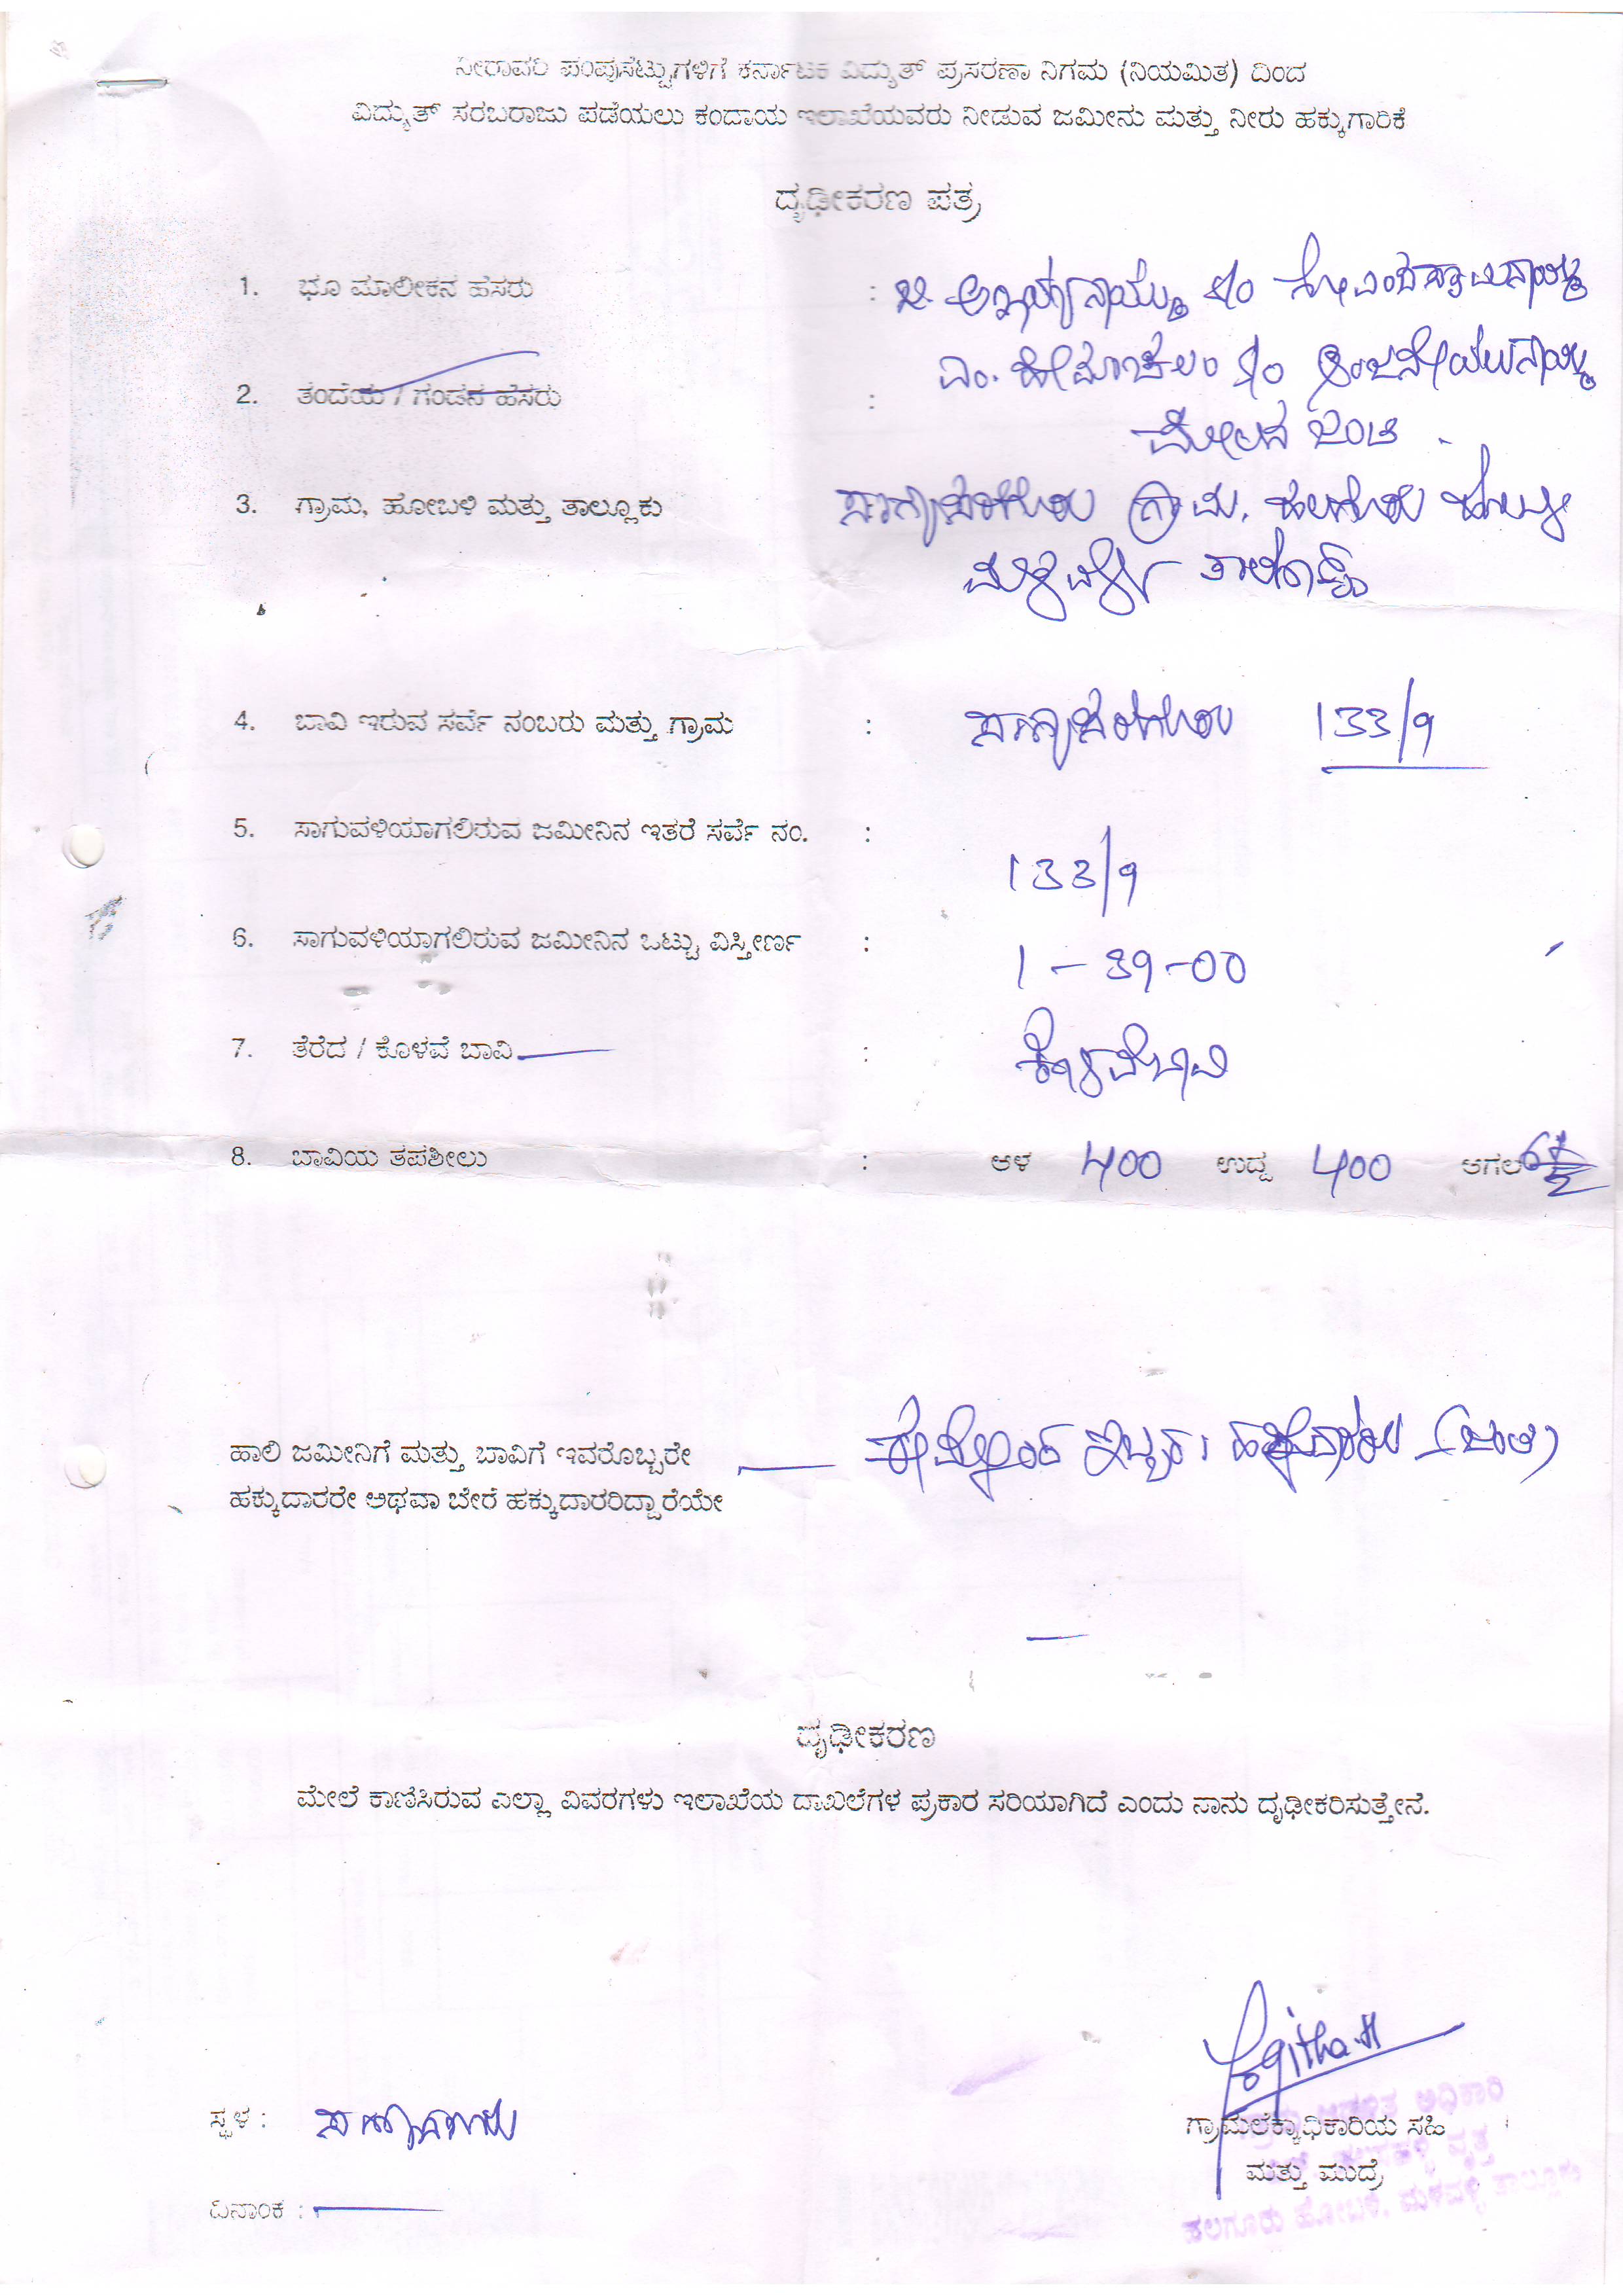 ನೀರಾವರಿ ಪಂಪುಸೆಟ್ಟುಗಳಿಗೆ ಕರ್ನಾಟಕ ವಿದ್ಯುತ್ ಪ್ರಸರಣಾ ನಿಗಮ (ನಿಯಮಿತ) ದಿಂದ
ವಿದ್ಯುತ್ ಸರಬರಾಜು ಪಡೆಯಲು ಕಂದಾಯ ಇಲಾಖೆಯವರು ನೀಡುವ ಜಮೀನು ಮತ್ತು ನೀರು ಹಕ್ಕುಗಾರಿಕೆ
ದೃಢೀಕರಣ ಪತ್ರ
1. ಭೂ ಮಾಲೀಕನ ಹೆಸರು :
2. ತಂದೆಯ / ಗಂಡನ ಹೆಸರು : ಎಂ. ಹೇಮಾಚಲಂ S/o
ಮೇಲಿನ ಜಂಟಿ
3. ಗ್ರಾಮ, ಹೋಬಳಿ ಮತ್ತು ತಾಲ್ಲೂಕು ಗ್ರಾಮ, ಹಲಗೂರು ಹೋಬಳಿ
ಮಳವಳ್ಳಿ ತಾಲ್ಲೂಕು
4. ಬಾವಿ ಇರುವ ಸರ್ವೆ ನಂಬರು ಮತ್ತು ಗ್ರಾಮ : 133/9
5. ಸಾಗುವಳಿಯಾಗಲಿರುವ ಜಮೀನಿನ ಇತರೆ ಸರ್ವೆ ನಂ. : 133/9
6. ಸಾಗುವಳಿಯಾಗಲಿರುವ ಜಮೀನಿನ ಒಟ್ಟು ವಿಸ್ತೀರ್ಣ : 1-39-00
7. ತೆರೆದ / ಕೊಳವೆ ಬಾವಿ : ಕೊಳವೆಬಾವಿ
8. ಬಾವಿಯ ತಪಶೀಲು : ಆಳ 400 ಉದ್ದ 400 ಅಗಲ
ಹಾಲಿ ಜಮೀನಿಗೆ ಮತ್ತು ಬಾವಿಗೆ ಇವರೊಬ್ಬರೇ
ಹಕ್ಕುದಾರರೇ ಅಥವಾ ಬೇರೆ ಹಕ್ಕುದಾರರಿದ್ದಾರೆಯೇ
ಮೇಲ್ಕಂಡ ಇಬ್ಬರು ಹಕ್ಕುದಾರರು (ಜಂಟಿ)
ದೃಢೀಕರಣ
ಮೇಲೆ ಕಾಣಿಸಿರುವ ಎಲ್ಲಾ ವಿವರಗಳು ಇಲಾಖೆಯ ದಾಖಲೆಗಳ ಪ್ರಕಾರ ಸರಿಯಾಗಿದೆ ಎಂದು ನಾನು ದೃಢೀಕರಿಸುತ್ತೇನೆ.
ಸ್ಥಳ :
ಗ್ರಾಮಲೆಕ್ಕಾಧಿಕಾರಿಯ ಸಹಿ
ಮತ್ತು ಮುದ್ರೆ
ದಿನಾಂಕ :
ಹಲಗೂರು ಹೋಬಳಿ, ಮಳವಳ್ಳಿ ತಾಲ್ಲೂಕು